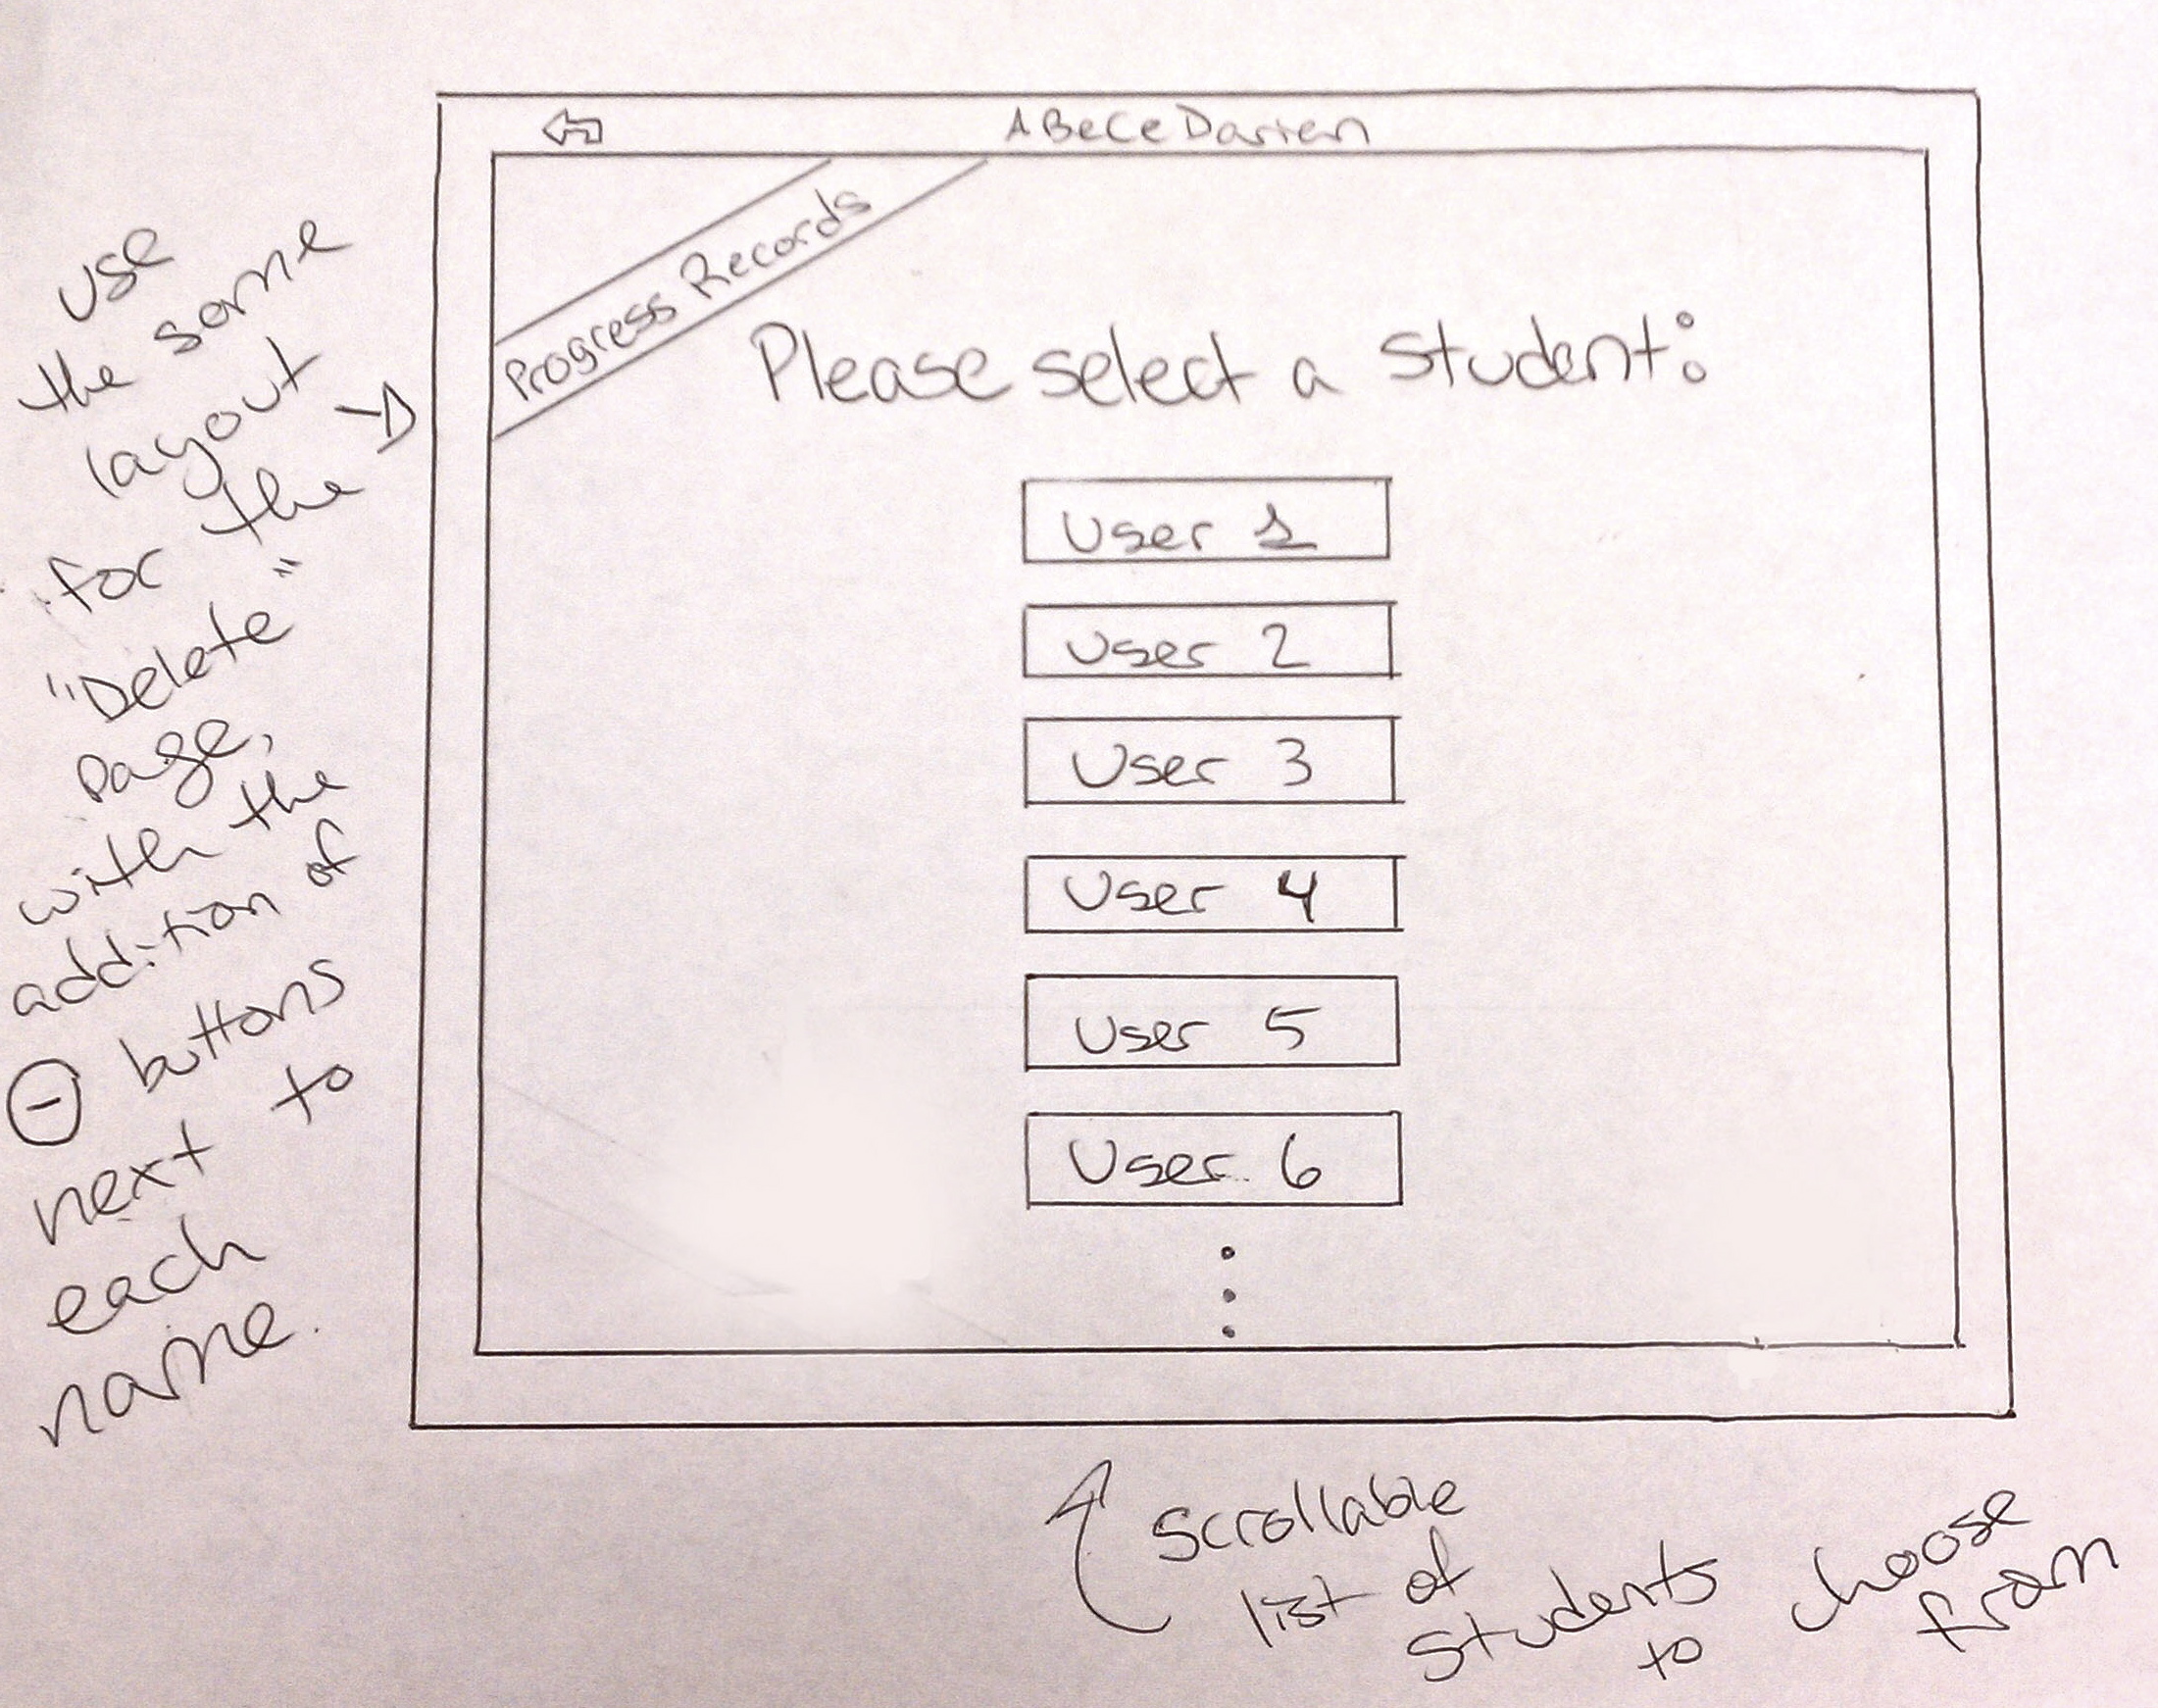 ABeCeDarien
Progress Records
Please select a student:
User 1
User 2
User 3
User 4
User 5
User 6
use
the same
layout
for the
"Delete"
page,
with the
addition of
⊖ buttons
next to
each
name.
Scrollable
list of
students
to choose
from